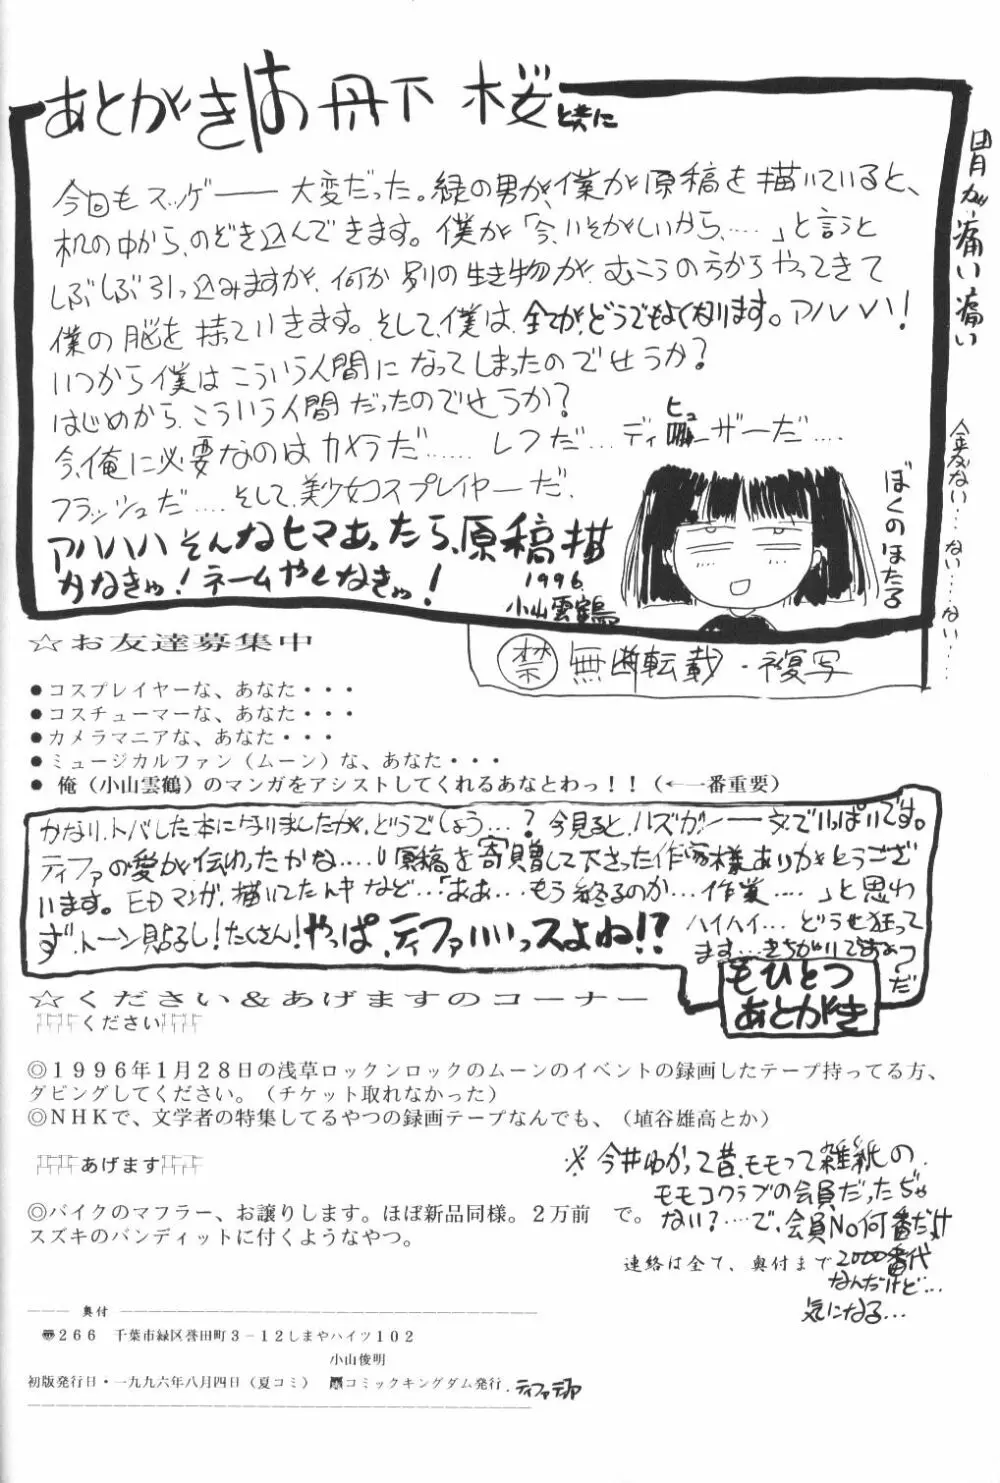 あとがきは丹下 桜と共に
今回もスッゲー―― 大変だった。緑の男が、僕が原稿を描いていると、
机の中から、のぞき込んできます。僕が「今、いそがしいから、……」と言うと
しぶしぶ引っ込みますが、何か別の生き物が、むこうの方からやってきて
僕の脳を持っていきます。そして、僕は、全てが、どうでもよくなります。アハハハ!
いつから僕はこういう人間になってしまったのでせうか?
はじめから、こういう人間だったのでせうか?
今、俺に必要なのはカメラだ…… レフだ… ディヒューザーだ….
フラッシュだ…. そして、美少女コスプレイヤーだ.
アハハハ そんなヒマあったら、原稿描
かなきゃ! ネームやんなきゃ!
1996
小山雲鶴
ぼくのほたる
胃が痛い痛い
金がない…. ない…. ない….
禁 無断転載・複写
☆お友達募集中
●コスプレイヤーな、あなた・・・
●コスチューマーな、あなた・・・
●カメラマニアな、あなた・・・
●ミュージカルファン(ムーン)な、あなた・・・
● 俺(小山雲鶴)のマンガをアシストしてくれるあなとわっ!!(←一番重要)
かなり、トバした本になりましたが、どうでしょう…? 今見ると、ハズガシ――文でいっぱいです。
ティファの愛が伝わったかな…。原稿を寄贈して下さった作家様ありがとうござ
います。EDマンガ、描いてた時など…「ああ…もう終るのか…作業….」と思わ
ず、トーン貼るし!たくさん!やっぱ、ティファいいっスよね!? ハイハイ… どうせ狂って
ます…きちがいであっつ
だ
もひとつ
あとがき
☆ください&あげますのコーナー
ください
◎1996年1月28日の浅草ロックンロックのムーンのイベントの録画したテープ持ってる方、
ダビングしてください。(チケット取れなかった)
◎NHKで、文学者の特集してるやつの録画テープなんでも、(埴谷雄高とか)
あげます
◎バイクのマフラー、お譲りします。ほぼ新品同様。2万前 で。
スズキのバンディットに付くようなやつ。
※ 今井ゆかって昔、モモって雑紙の
モモコクラブの会員だったぢゃ
ない?…で、会員No何番だっけ
2000番代
なんだけど…
気になる…
連絡は全て、奥付まで
奥付
〠266 千葉市緑区誉田町3-12しまやハイツ102
小山俊明
初版発行日・一九九六年八月四日(夏コミ) コミックキングダム発行.ティファデア